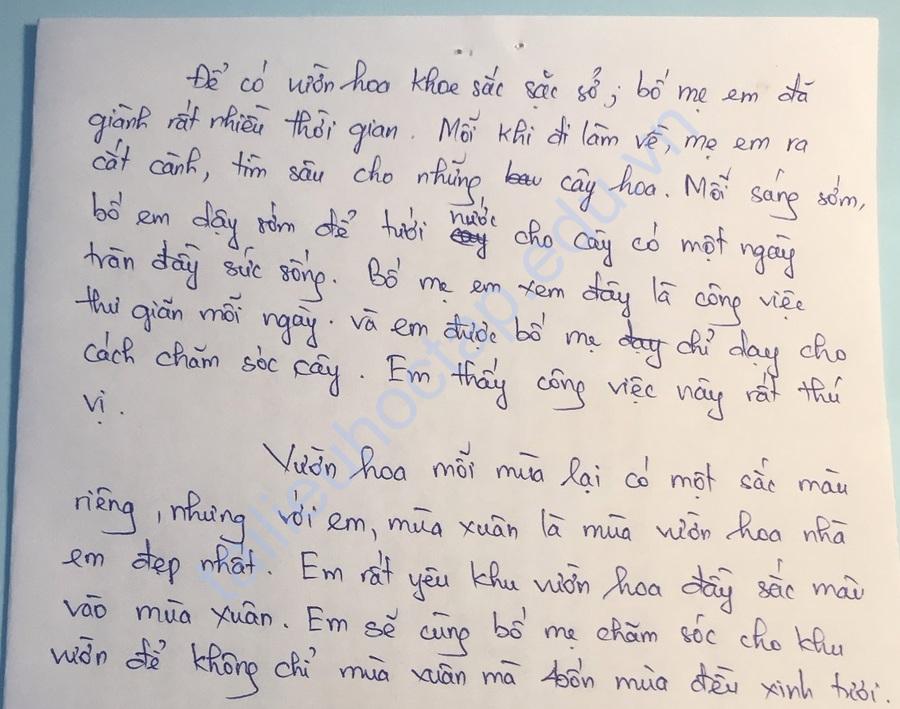 Để có vườn hoa khoe sắc sặc sỡ, bố mẹ em đã
giành rất nhiều thời gian. Mỗi khi đi làm về, mẹ em ra
cắt cành, tìm sâu cho những cây hoa. Mỗi sáng sớm,
bố em dậy sớm để tưới nước cho cây có một ngày
tràn đầy sức sống. Bố mẹ em xem đây là công việc
thư giãn mỗi ngày. và em được bố mẹ chỉ dạy cho
cách chăm sóc cây. Em thấy công việc này rất thú
vị.
Vườn hoa mỗi mùa lại có một sắc màu
riêng, nhưng với em, mùa xuân là mùa vườn hoa nhà
em đẹp nhất. Em rất yêu khu vườn hoa đầy sắc màu
vào mùa xuân. Em sẽ cùng bố mẹ chăm sóc cho khu
vườn để không chỉ mùa xuân mà bốn mùa đều xinh tươi.
tailieuhoctap.edu.vn